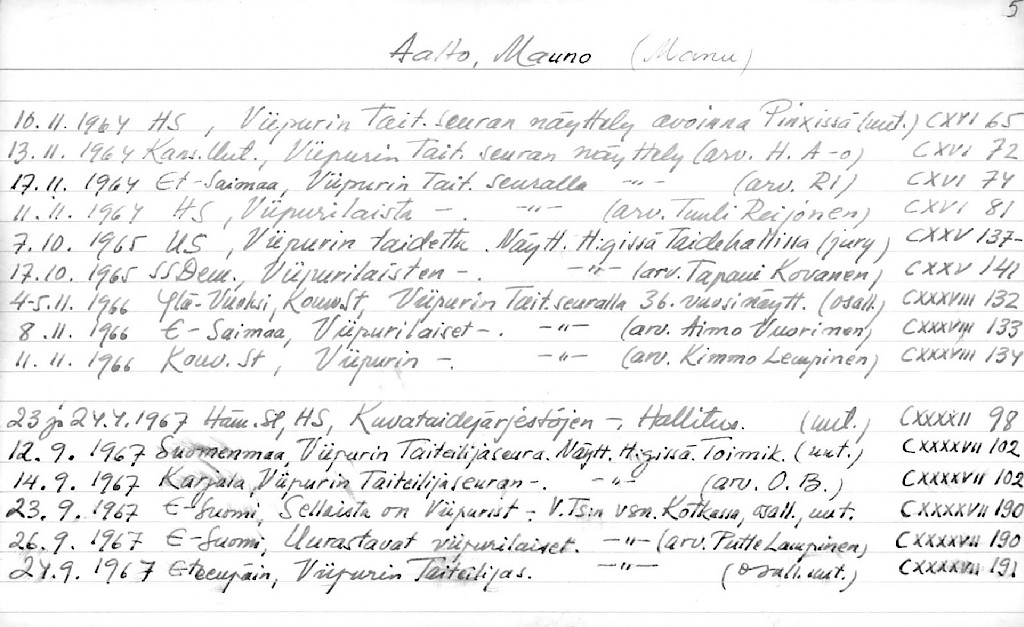 5
Aalto, Mauno (Manu)
10.11.1964 HS, Viipurin Tait.seuran näyttely avoinna Pinxissä (uut.) CXVI 65
13.11.1964 Kans.Uut., Viipurin Tait. seuran näyttely (arv. H. A-o) CXVI 72
17.11.1964 Et-Saimaa, Viipurin Tait. seuralla -"- (arv. RI) CXVI 74
11.11.1964 HS, Viipurilaista -. -"- (arv. Tuuli Reijonen) CXVI 81
7.10.1965 US, Viipurin taidetta. Näytt. H:gissä Taidehallissa (jury) CXXV 137-
17.10.1965 SSDem., Viipurilaisten -. -"- (arv. Tapani Kovanen) CXXV 141
4-5.11.1966 Ylä-Vuoksi, Kouv.St, Viipurin Tait.seuralla 36. vuosinäytt. (osall.) CXXXVIII 132
8.11.1966 E-Saimaa, Viipurilaiset -. -"- (arv. Aimo Vuorinen) CXXXVIII 133
11.11.1966 Kouv.St, Viipurin -. -"- (arv. Kimmo Lempinen) CXXXVIII 134
23 ja 24.4.1967 Häm.St, HS, Kuvataidejärjestöjen -. Hallitus. (uut.) CXXXXII 98
12.9.1967 Suomenmaa, Viipurin Taiteilijaseura. Näytt. H:gissä. Toimik. (uut.) CXXXXVII 102
14.9.1967 Karjala, Viipurin Taiteilijaseuran -. -"- (arv. O.B.) CXXXXVII 102
23.9.1967 E-Suomi, Sellaista on Viipurist -. V.Ts:n vsn. Kotkassa, osall., uut. CXXXXVII 190
26.9.1967 E-Suomi, Uurastavat viipurilaiset. -"- (arv. Putte Lampinen) CXXXXVII 190
24.9.1967 Eteenpäin, Viipurin Taiteilijas. -"- (osall. uut.) CXXXXVII 191